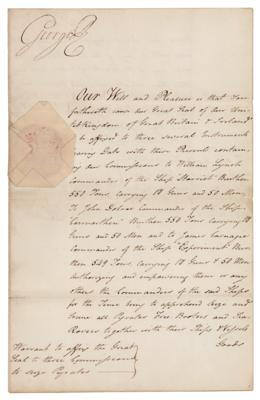 George R
Our Will and Pleasure is that You
forthwith cause our Great Seal of Our Uni-
ted Kingdom of Great Britain & Ireland
to be affixed to three several Instruments
bearing Date with these Presents contain-
ing our Commissions to William Lynch
Commander of the Ship Harriot Burthen
550 Tons, carrying 18 Guns and 50 Men,
To John Dobree Commander of the Ship
Carmarthen Burthen 550 Tons, carrying 18
Guns and 50 Men and to James Carnegie
Commander of the Ship Experiment Bur-
then 549 Tons, carrying 18 Guns & 50 Men
Authorizing and empowering them or any
others the Commanders of the said Ships
for the Time being to apprehend Seize and
secure all Pyrates Free Booters and Sea
Rovers together with their Ships & Vessels
Goods
Warrant to affix the Great
Seal to three Commissions
to Seize Pyrates